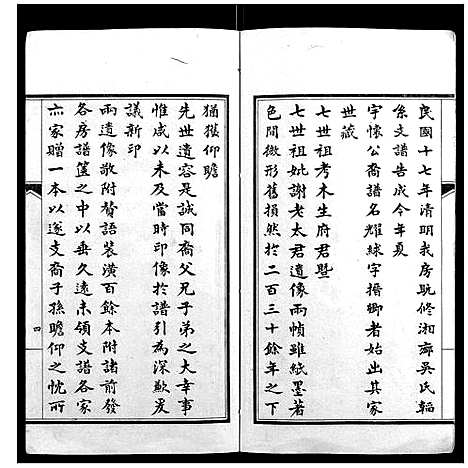 民國十七年清明我房既修湘鄉吳氏韜
系支譜告成今年夏
宇懷公裔譜名耀緣字搢卿者始出其家
世藏
七世祖考木生府君暨
七世祖妣謝老太君遺像兩幀雖紙墨著
色間微形舊損然於二百三十餘年之下
猶獲仰瞻
先世遺容是誠同裔父兄子弟之大幸事
惟咸以未及當時印像於譜引為深歉爰
議新印
兩遺像敬附贊語裝潢百餘本附諸前發
各房譜篋之中以垂久遠未領支譜各家
亦家贈一本以遂支裔子孫瞻仰之忱所
四